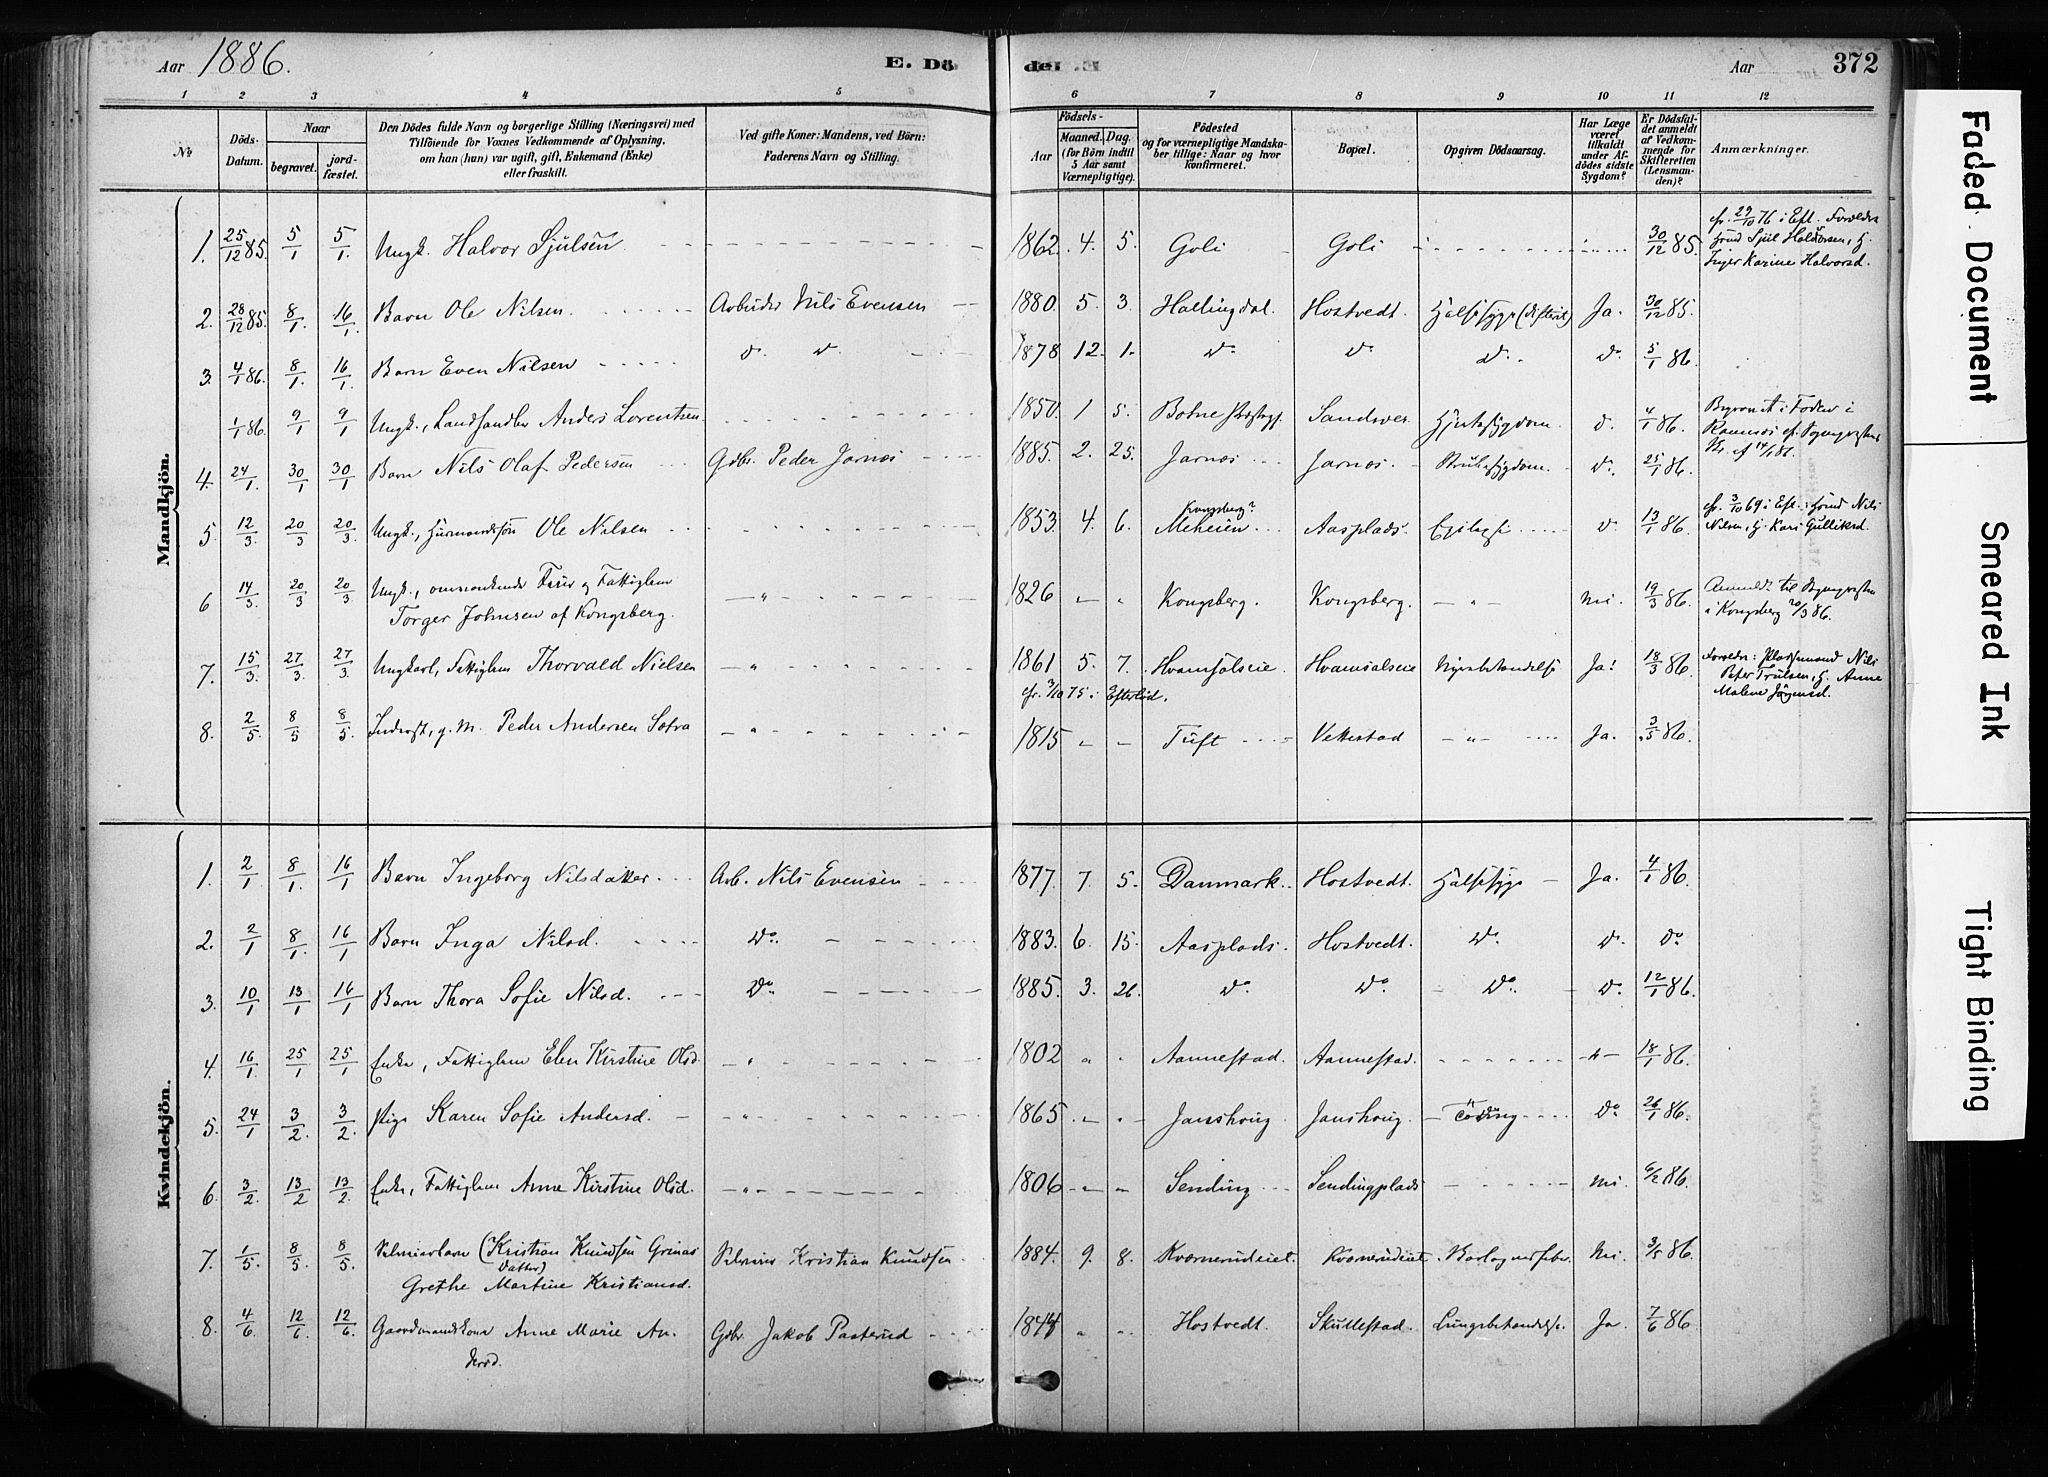 Aar 1886. E. Dö
de. Aar 372
1 2 3 4 5 6 7 8 9 10 11 12
No
Döds-Datum.
Naar
begravet.
jord-fæstet.
Den Dödes fulde Navn og borgerlige Stilling (Næringsvei) med
Tilföiende for Voxnes Vedkommende af Oplysning,
om han (hun) var ugift, gift, Enkemand (Enke)
eller fraskilt.
Ved gifte Koner: Mandens, ved Börn:
Faderens Navn og Stilling.
Födsels-
Aar
Maaned. Dag.
(for Börn indtil
5 Aar samt
Værnepligtige).
Födested
og for værnepligtige Mandska-
ber tillige: Naar og hvor
konfirmeret.
Bopæl.
Opgiven Dödsaarsag.
Har Læge
været
tilkaldt
under Af-
dödes sidste
Sygdom?
Er Dödsfal-
det anmeldt
af Vedkom-
mende for
Skifteretten
(Lensman-
den)?
Anmærkninger.
Mandkjön.
1. 25/12 85. 5/1 5/1. Ungk. Halvor Sjulsen 1862. 4. 5. Goli Goli 30/12 85. cfr. 29/10 76 i Eft. Forældre
Sjul Halvorsen, h.
Inger Karine Halvorsd.
2. 28/12 85. 8/1. 16/1. Barn Ole Nilsen. Arbeider Nils Evensen 1880. 5. 3. Hallingdal. Hostvedt. Halssyge (Difterit) Ja. 30/12 85.
3. 4/1 86. 8/1. 16/1. Barn Even Nilsen do. do 1878 12. 1. do. do do. do. 5/1 86.
1/1 86. 9/1 9/1 Ungk., Landhandler Anders Lorentzen. 1850. 1 5. Botne Sandsvær Hjertesygdom. do. 4/1 86. Begravet i Foden i
4. 24/1. 30/1 30/1 Barn Nils Olaf Pedersen Gdbr. Peder Jarnæs 1885. 2. 25. Jarnæs Jarnæs. Brystsygdom. do. 25/1 86.
5. 12/3. 20/3 20/3 Ungk., Husmandssøn Ole Nilsen 1853. 4. 6. Kongsberg?
Meheien Aasplads. Epilepsi do. 13/1 86. cfr. 3/10 69 i Eft. Nils
Nilsen, h. Kari Gulliksd.
6 14/3. 20/3 20/3 Ungk., omvankende Fattiglem
Torger Johnsen af Kongsberg. 1826 Kongsberg. Kongsberg. Nei. 19/3 86. Anmeldt til
i Kongsberg 20/3 86.
7. 15/3. 27/3. 27/3. Ungkarl, Fattiglem Thorvald Nielsen 1861 5. 7. Hvamsalseie Hvamsalseie Nyrebetændelse Ja! 18/3 86. Forældre: Pladsmand Nils
cfr. 3/10 75 i Efterløt. Peter Trulsen, h. Anne
Malene Jörgensd.
8. 2/5. 8/5 8/5. Inderst, g. M. Peder Andersen Sætra 1815 Tuft Vettestad Ja. 3/5 86.
Kvindekjön.
1. 2/1 8/1. 16/1 Barn Ingeborg Nilsdatter Arb. Nils Evensen 1877. 7. 5. Danmark. Hostvedt. Halssyge Ja. 4/1 86.
2. 2/1 8/1. 16/1 Barn Inga Nilsd. do. 1883. 6. 15. Aasplads. Hostvedt. do. do. do.
3. 10/1 13/1 16/1 Barn Thora Sofie Nilsd. do. 1885. 3. 26. do. do do. do. 12/1 86.
4. 16/1. 25/1 25/1 Enke, Fattiglem Elen Kirstine Olsd. 1802 Aannestad. Aannestad. 18/1 86.
5. 24/1 3/2. 3/2. Pige Karen Sofie Andersd. 1865. Janshoug Janshoug. Tæring do 26/1 86.
6. 3/2. 13/2 13/2. Enke, Fattiglem Anne Kirstine Olsd. 1806 Sending Sendingplads Nei. 6/2 86.
7. 1/5. 8/5. 8/5. Selveierbarn (Kristian Knudsen Grinas
Datter)
Grethe Martine Kristiansd. Selveier Kristian Knudsen 1884. 9. 8. Kværnerudeiet. Kværnerudeiet Nei. 3/5 86.
8. 4/6 12/6. 12/6. Gaardmandskone Anne Marie An-
dersd. Gdbr. Jakob Pasterud 1844 Hostvedt. Skullestad. Lungebetændelse. Ja 7/6 86
Faded Document
Smeared Ink
Tight Binding